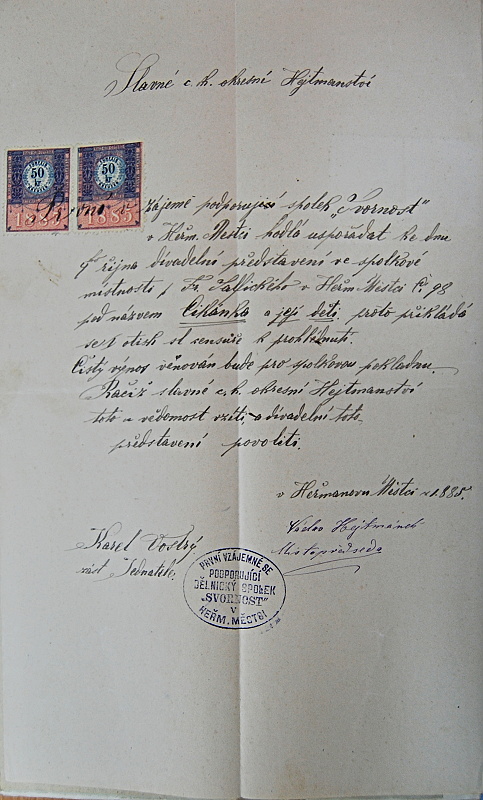 Slavné c. k. okresní Hejtmanství
50
kr
50
kr
1885
1885
První vzájemě podporující spolek „Svornost"
v Heřm. Městci hodlá uspořádat ke dni
4ho října divadelní představení ve spolkové
místnosti p Fr. v Heřm Městci Čp 98
pod názvem Cikánka a její děti, proto přikládá
se 1 otisk censuře k prohlédnutí.
Čistý výnos věnován bude pro spolkovou pokladnu
Račiž slavné c. k. okresní Hejtmanství
toto u vědomost vzíti, a divadelní toto
představení povoliti.
v Heřmanovu Městci 1885.
Karel Vostrý
Jednatel.
Václav Hejtmánek
Místopředseda
PRVNÍ VZÁJEMNĚ SE
PODPORUJÍCÍ
DĚLNICKÝ SPOLEK
„SVORNOST"
V
HEŘM. MĚSTCI